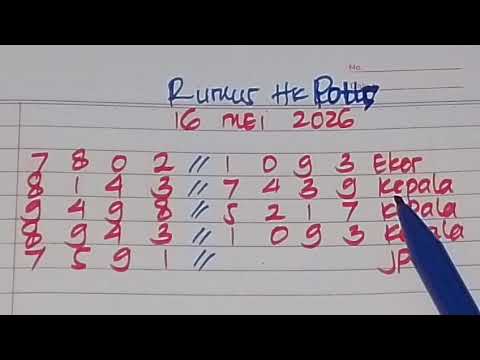 No.
Rumus HK Pools
16 MEI 2026
7 8 0 2 // 1 0 9 3 Ekor
8 1 4 3 // 7 4 3 9 Kepala
9 4 9 8 // 5 2 1 7 Kepala
8 9 4 3 // 1 0 9 3 Kepala
7 5 9 1 // JP